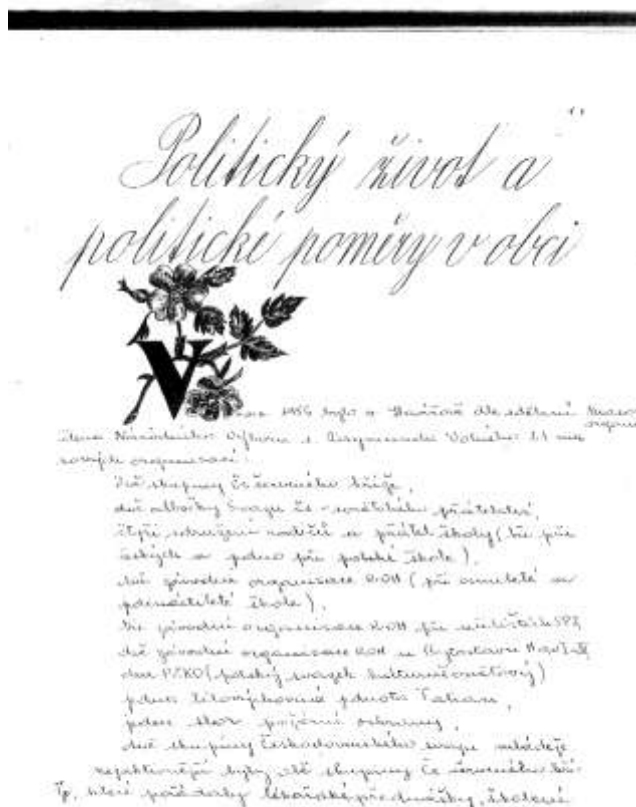 Politický život a
politické poměry v obci
V roce 1956 bylo v Havířově dle sdělení
člena Národního Výboru s. Volného 21 ma
sových organisací:
dvě skupiny Čs červeného kříže,
dvě odbočky Svazu čs - sovětského přátelství,
čtyři sdružení rodičů a přátel školy (tři při
českých a jedno při polské škole),
dvě závodní organisace ROH (při osmileté a
jedenáctileté škole),
tři závodní organisace ROH při
dvě závodní organisace ROH u
dva PZKO (polský svazek kulturně osvětový)
jedna tělovýchovná jednota Tatran,
jeden sbor požární ochrany,
dvě skupiny Československého svazu mládeže
nejaktivnější byly obě skupiny Čs červeného kří-
že, které pořádaly lékařské přednášky, školení